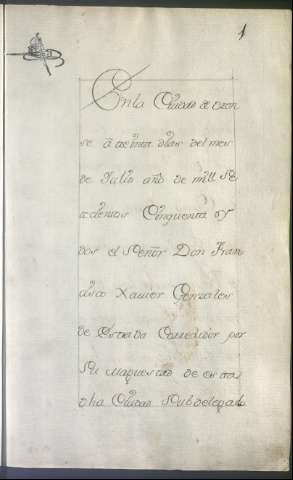 1
En la Ciudad de Oren
se à treinta dias del mes
de Julio año de mill Se
tecientos Cinquenta y
dos el Señor Don Fran
cisco Xavier Gonzales
de Estrada Correxidor por
Su Magestad de esta
dha Ciudad Subdelegado